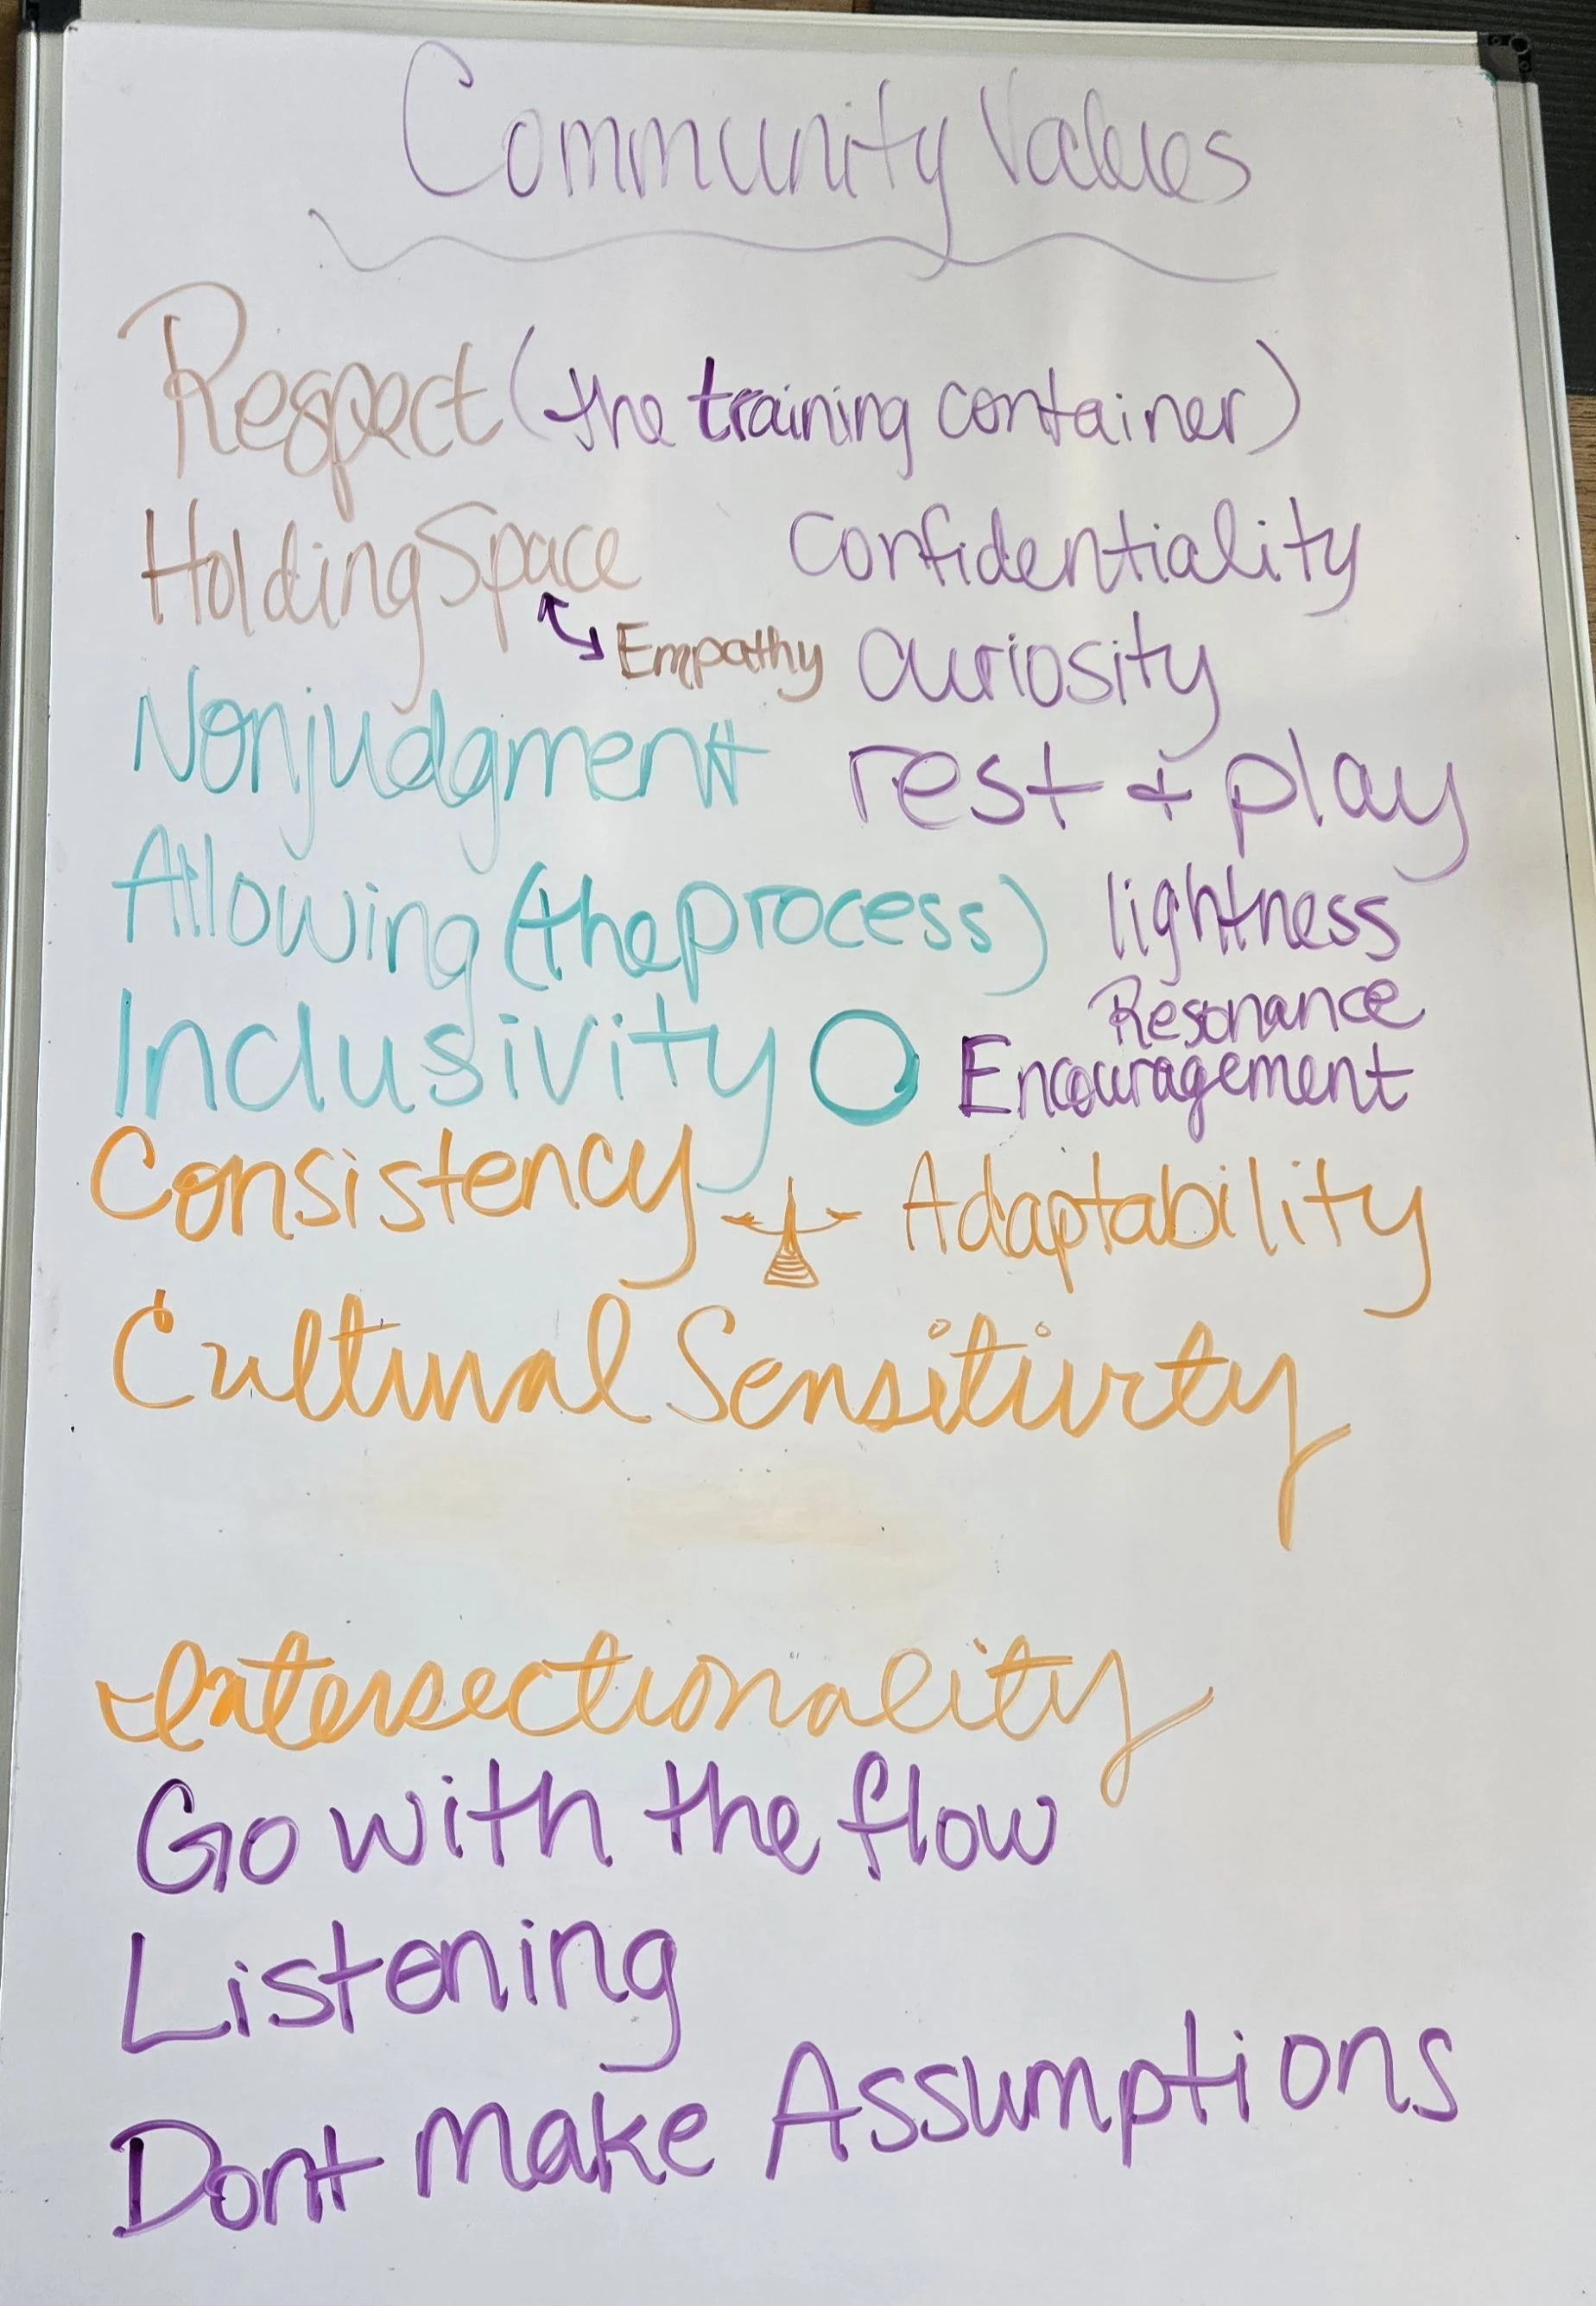 Community Values
Respect (the training container)
Holding Space
Confidentiality
Empathy
Curiosity
Nonjudgment
rest + play
Allowing (the process)
lightness
Resonance
Inclusivity
Encouragement
Consistency
Adaptability
Cultural Sensitivity
Intersectionality
Go with the flow
Listening
Dont make Assumptions